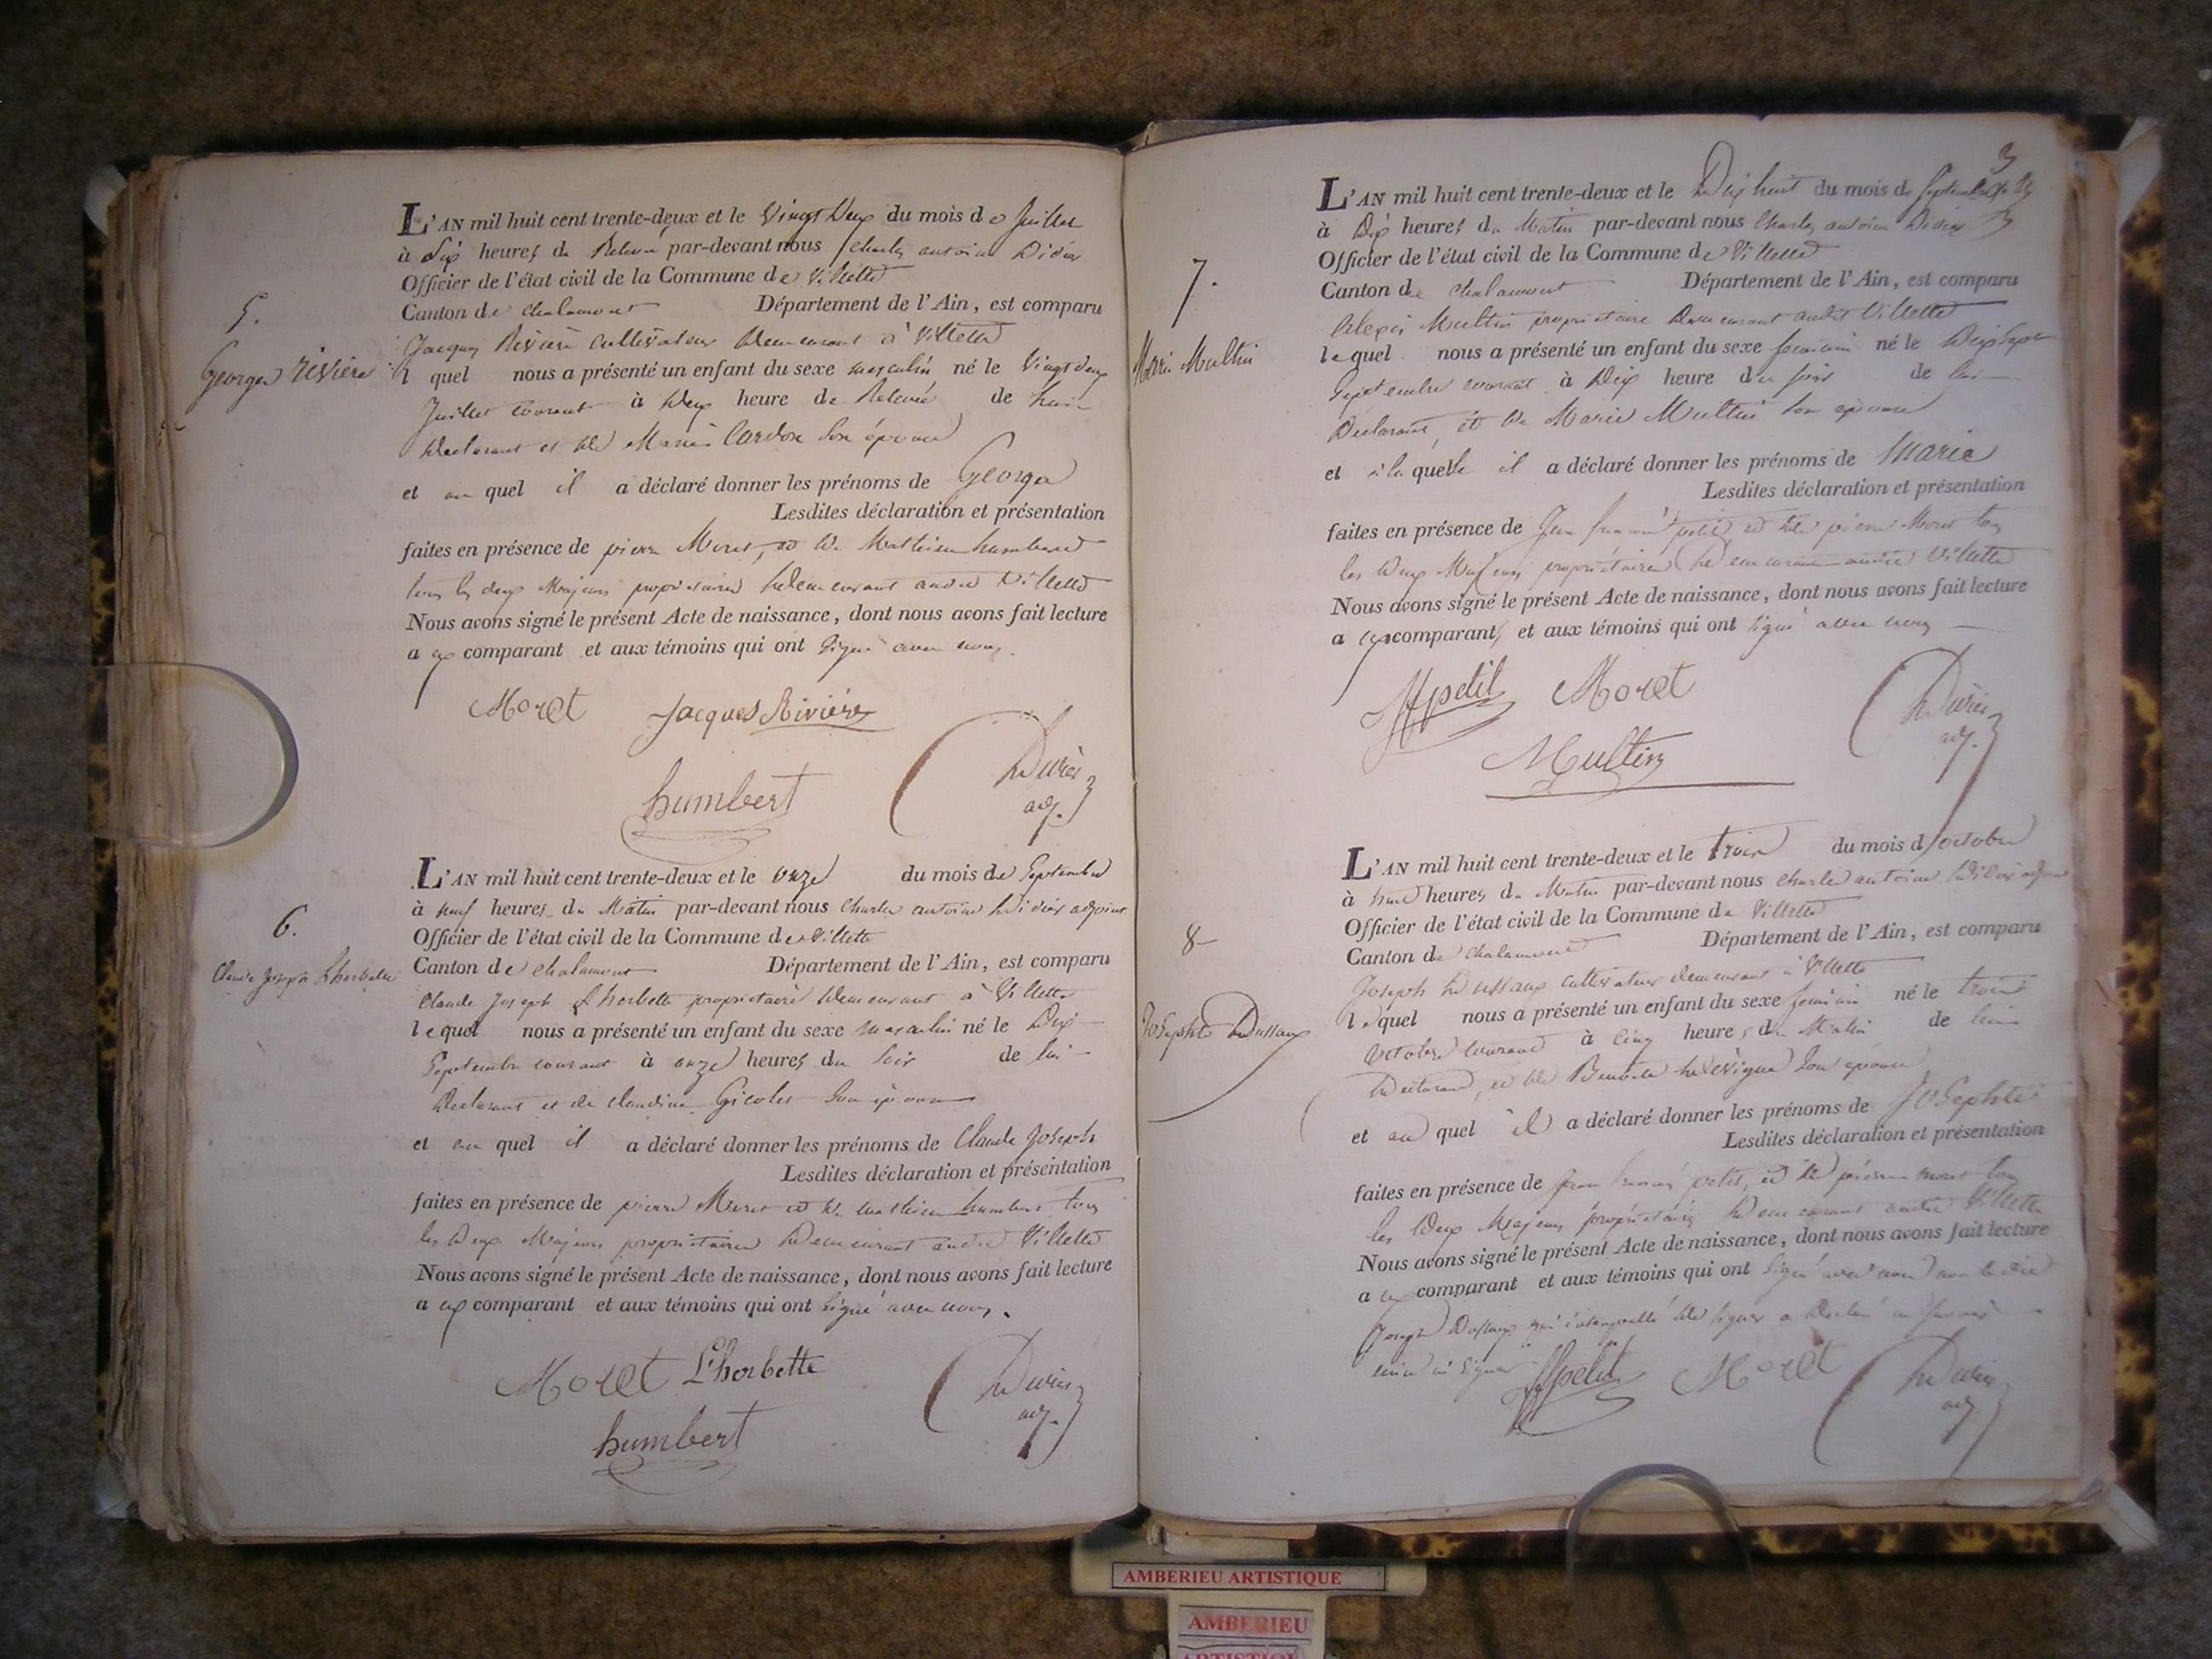 5.
Georges riviére
L'AN mil huit cent trente-deux et le vingt deux du mois de Juillet
à Six heures de Relevée par-devant nous Charles antoine Didier
Officier de l'état civil de la Commune de Villette
Canton de chalamont Département de l'Ain, est comparu
Jacques Riviere cultivateur demeurant à Villette
l quel nous a présenté un enfant du sexe masculin né le vingt deux
Juillet courant à deux heure de Relevée de lui
declarant et de Marie Cardon son épouse
et au quel il a déclaré donner les prénoms de George
Lesdites déclaration et présentation
faites en présence de pierre Moret, et de Mathieu humbert
tous les deux Majeurs propriétaires demeurant audit Villette
Nous avons signé le présent Acte de naissance, dont nous avons fait lecture
a comparant et aux témoins qui ont Signé avec nous.
Moret Jacques Riviére
humbert Didier
adj.
6.
Claude Joseph Lhorbette
L'AN mil huit cent trente-deux et le onze du mois de Septembre
à neuf heures du Matin par-devant nous Charles antoine Didier adjoint
Officier de l'état civil de la Commune de Villette
Canton de chalamont Département de l'Ain, est comparu
Claude Joseph Lhorbette propriétaire demeurant à Villette
lequel nous a présenté un enfant du sexe masculin né le Dix
Septembre courant à onze heures du Soir de lui
declarant et de claudine son épouse
et au quel il a déclaré donner les prénoms de Claude Joseph
Lesdites déclaration et présentation
faites en présence de pierre Moret et de mathieu humbert tous
les deux Majeurs propriétaires demeurant audit Villette
Nous avons signé le présent Acte de naissance, dont nous avons fait lecture
a comparant et aux témoins qui ont Signé avec nous.
Moret L'horbette
humbert Didier
adj.
3
7.
Marie Multin
L'AN mil huit cent trente-deux et le Dix huit du mois de Septembre
à Dix heures du Matin par-devant nous Charles antoine Didier
Officier de l'état civil de la Commune de Villette
Canton de Chalamont Département de l'Ain, est comparu
Alexis Multin propriétaire demeurant audit Villette
lequel nous a présenté un enfant du sexe feminin né le Dix Sept
Septembre courant à Dix heure du soir de lui
Declarant, et de Marie Multin son épouse
et à la quelle il a déclaré donner les prénoms de Marie
Lesdites déclaration et présentation
faites en présence de Jean françois petit, et de pierre Moret tous
les deux Majeurs propriétaires demeurant audit Villette
Nous avons signé le présent Acte de naissance, dont nous avons fait lecture
a comparant, et aux témoins qui ont signé avec nous
petit Moret
Multin Didier
adj.
8
Josephte Dussaux
L'AN mil huit cent trente-deux et le trois du mois d'octobre
à heures du Matin par-devant nous Charles antoine Didier adjoint
Officier de l'état civil de la Commune de Villette
Canton de Chalamont Département de l'Ain, est comparu
Joseph Dussaux cultivateur demeurant à Villette
lequel nous a présenté un enfant du sexe feminin né le trois
Octobre courant à cinq heures du Matin de lui
Declarant, et de Benoite son épouse
et au quel il a déclaré donner les prénoms de Josephte
Lesdites déclaration et présentation
faites en présence de Jean françois petit, et de pierre moret tous
les deux Majeurs propriétaires demeurant audit Villette
Nous avons signé le présent Acte de naissance, dont nous avons fait lecture
a comparant et aux témoins qui ont Signé avec nous non ledit
Joseph Dussaux qui de signer a Declaré ne savoir
ni signer
petit Moret Didier
adj
AMBERIEU ARTISTIQUE
AMBERIEU
ARTISTIQUE